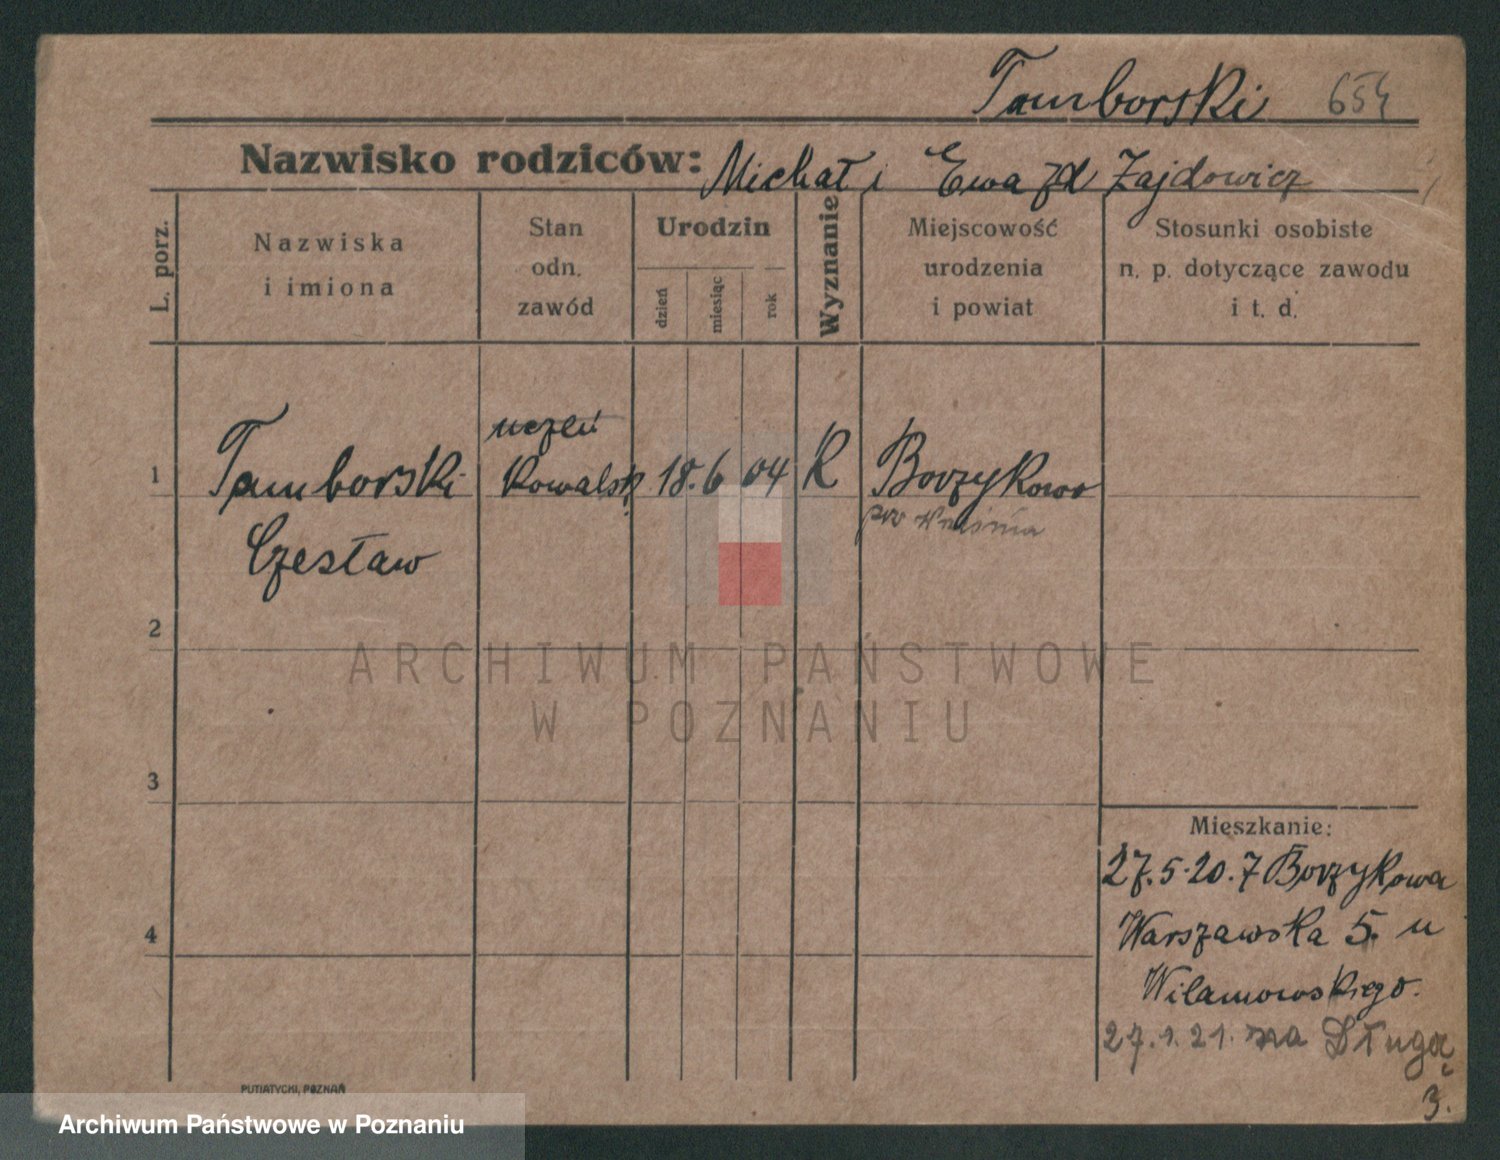 Tamborski 654
Nazwisko rodziców: Michał i Ewa zd Zajdowicz
L. porz.
Nazwiska
i imiona
Stan
odn.
zawód
Urodzin
dzień
miesiąc
rok
Wyznanie
Miejscowość
urodzenia
i powiat
Stosunki osobiste
n. p. dotyczące zawodu
i t. d.
1
Tamborski
Czesław
uczeń
kowalsk.
18. 6 04
R
Borzykowo
pow Września
2
3
4
Mieszkanie:
27.5.20. z Borzykowa
Warszawska 5. u
Wilamowskiego.
27.1.21. na Długą
3.
PUTIATYCKI, POZNAŃ
ARCHIWUM PAŃSTWOWE
W POZNANIU
Archiwum Państwowe w Poznaniu